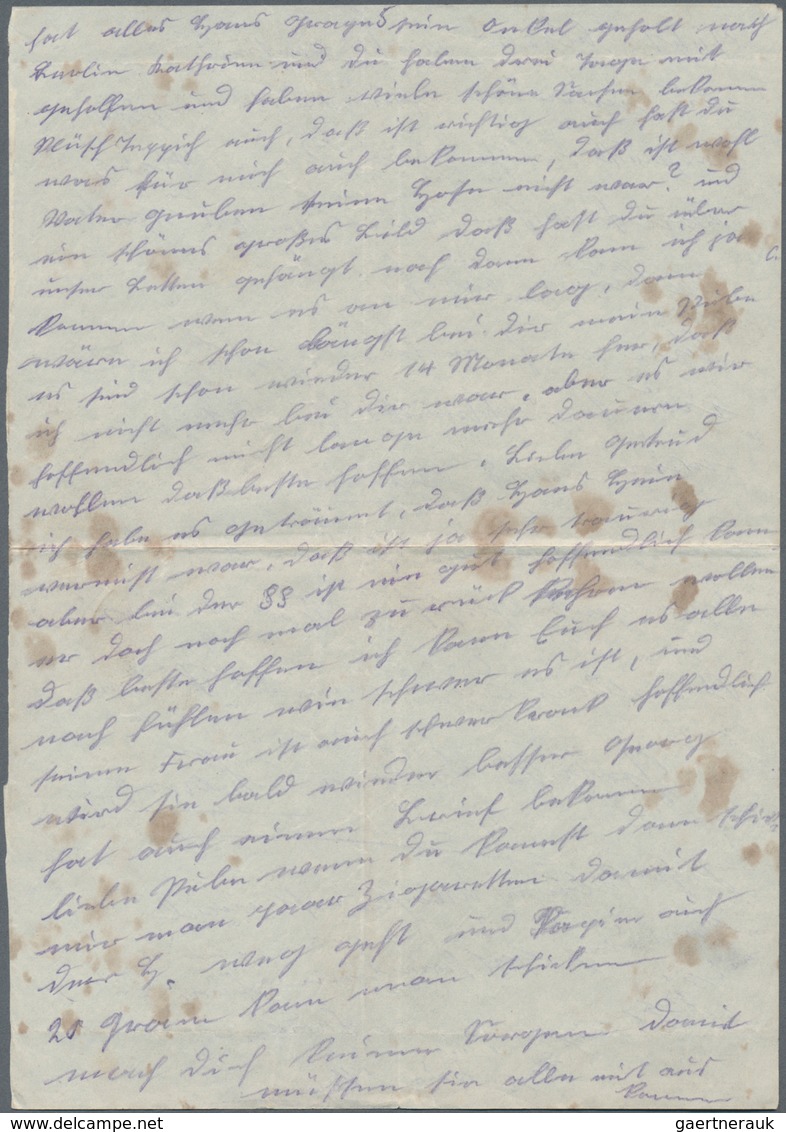 hat alles Hans sein Onkel geholt nach
Berlin Kathrine und du haben drei Tage mit
geholfen und haben viele schöne Sachen bekomen
Plüsch Teppich auch, daß ist richtig auch hast du
was für mich auch bekommen, daß ist wohl
Vater seine Hose nicht war? und
ein schönes großes Bild daß hast du über
unser Betten gehängt. noch dann kann ich ja
kommen wen es an mir lag, dann
wäre ich schon längst bei dir meine
es sind schon wieder 14 Monate her, daß
ich nicht mehr bei dir war, aber es wir
hoffendlich nicht lange mehr dauern
wohlen daß beste hoffen. Liebe Gertrud
ich habe es geträumt, daß Hans Hein
vermist war, daß ist ja sehr traurig
aber bei der SS ist ein gut hoffendlich kann
er doch noch mal zurück wollen
daß beste hoffen ich kann Euch es alle
nach fühlen wie schwer es ist, und
seine Frau ist auch schwer krank hoffendlich
wird sie bald wieder besser Georg
hat auch einen Brief bekommen
liebe wenn du kannst dann
mir man paar Zigaretten damit
der H. weg geht und Papier auch
20 Gram kann man schicken
mach dich keine Sorgen damit
müssen sie alle mit aus
kommen
gaertnerauk